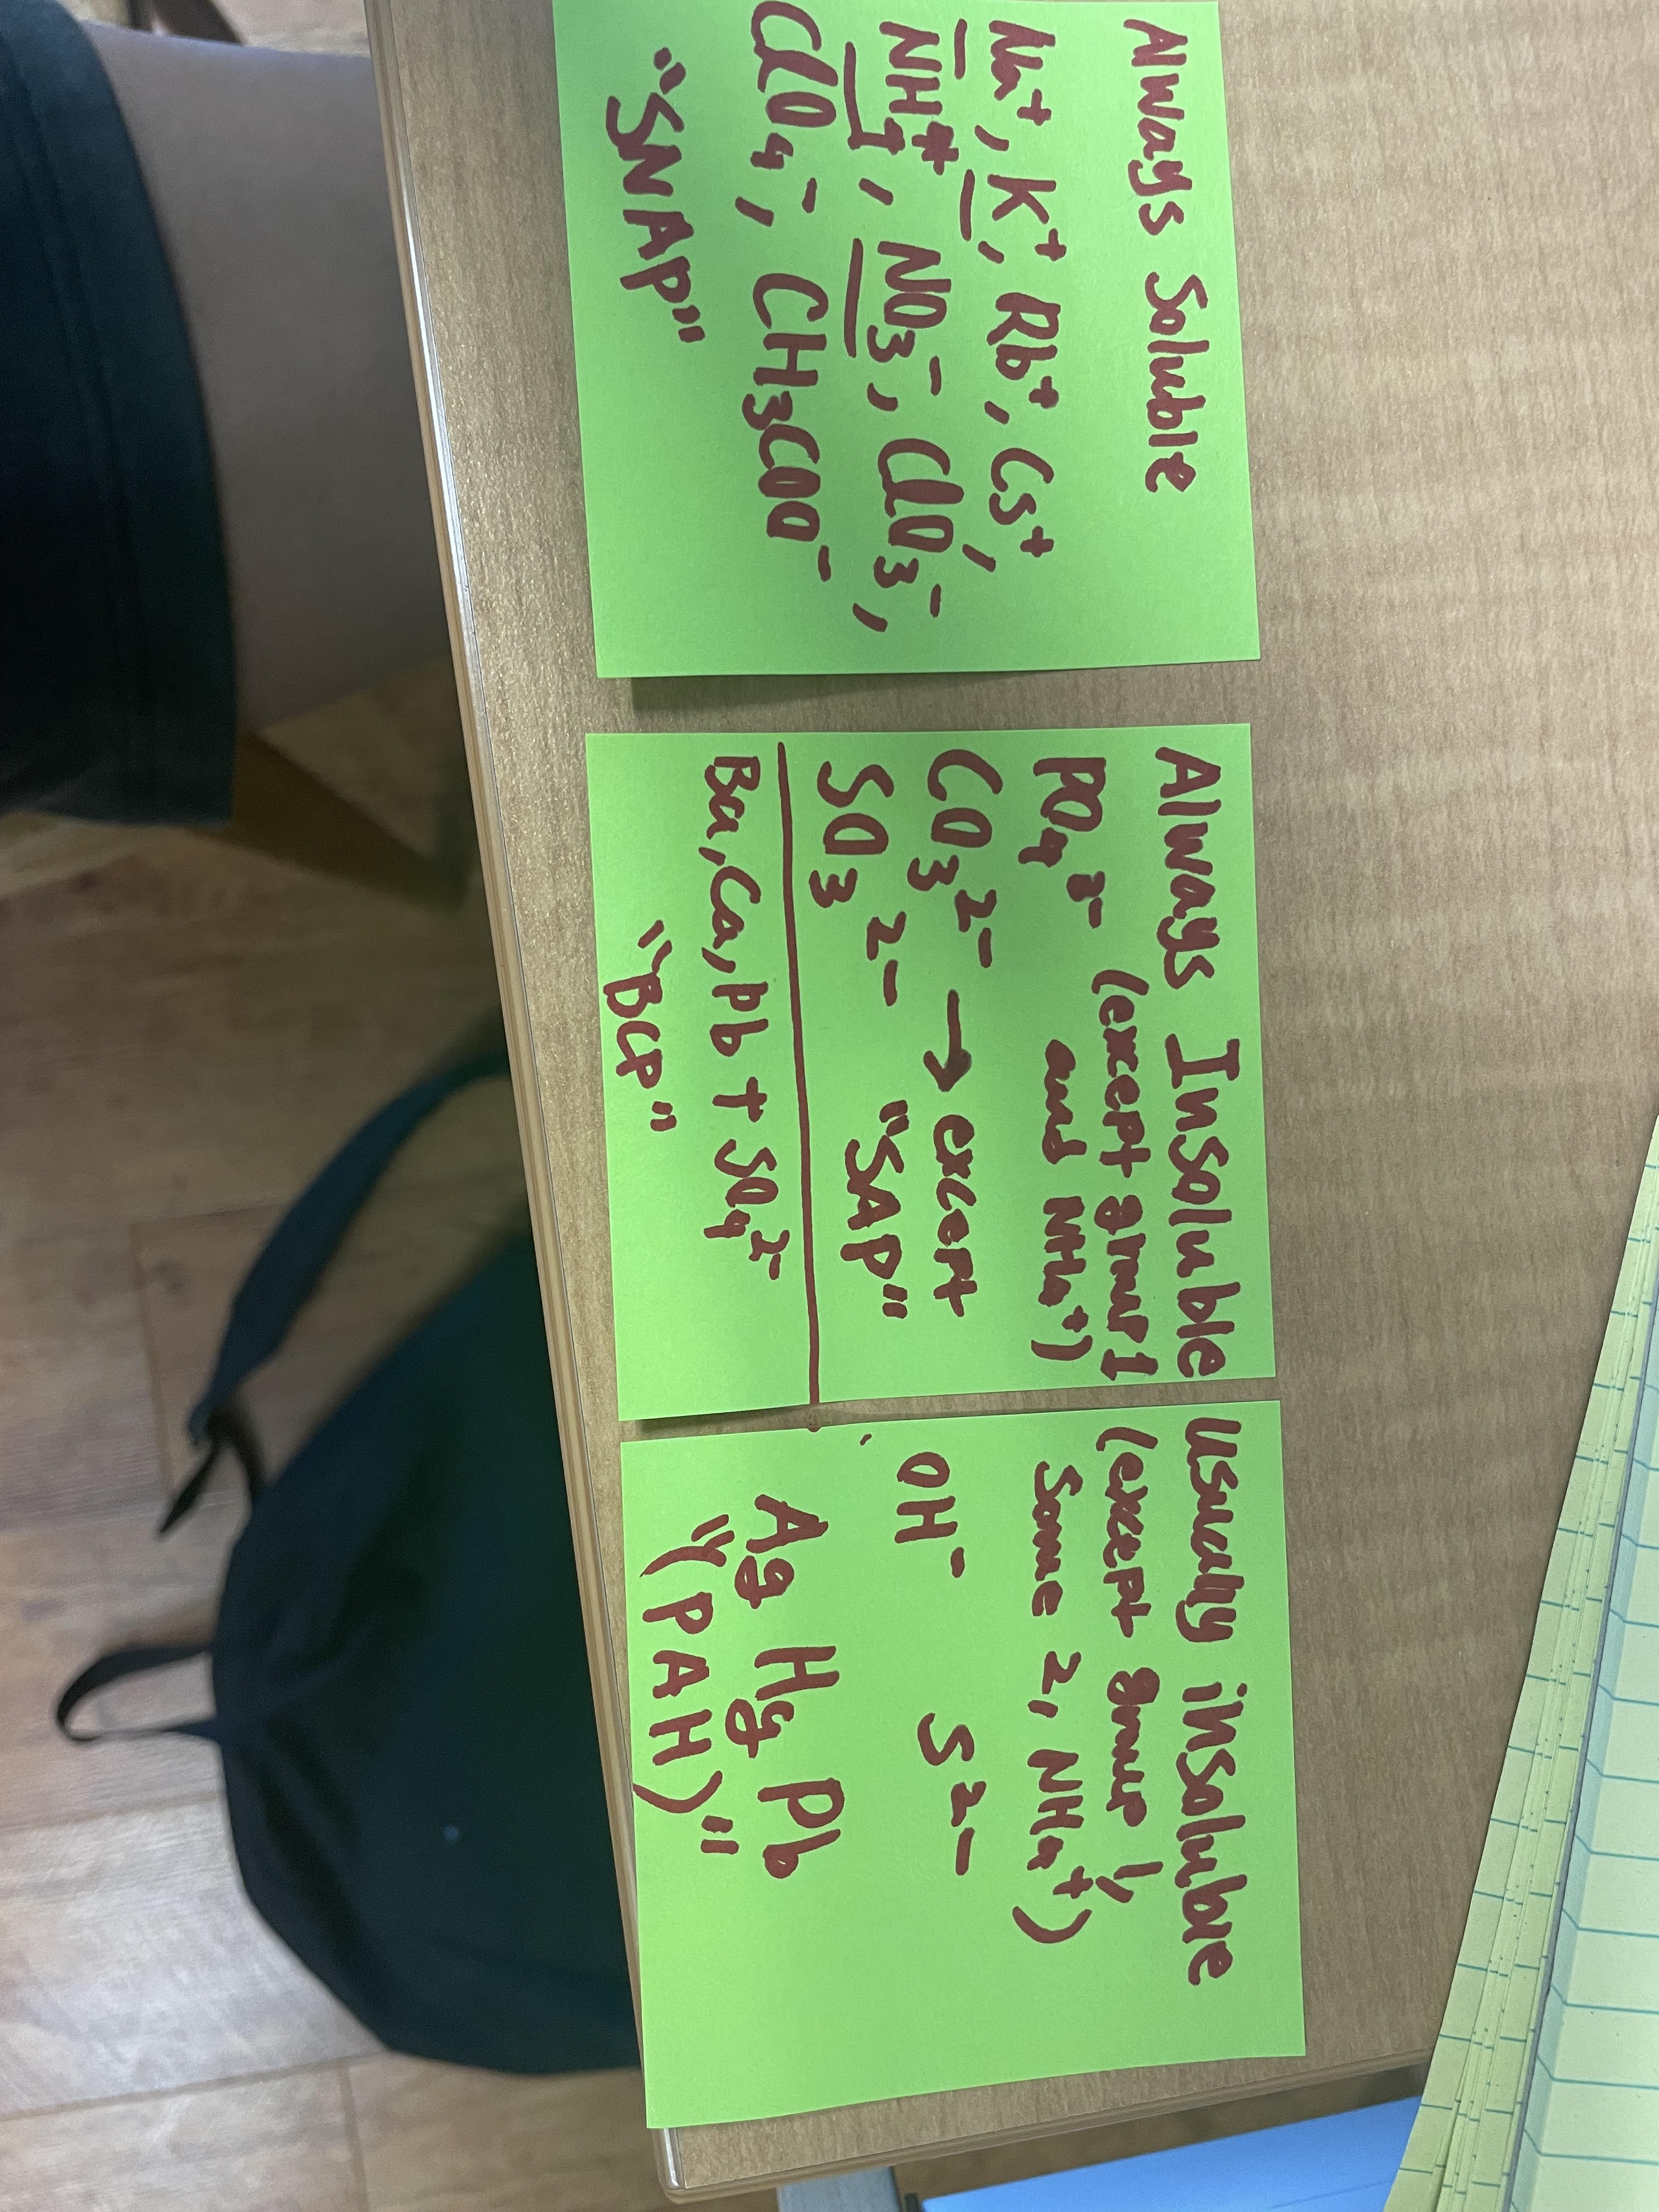 Always Soluble
Na⁺, K⁺, Rb⁺, Cs⁺,
NH₄⁺, NO₃⁻, ClO₃⁻,
ClO₄⁻, CH₃COO⁻
"SNAP"
Always Insoluble
(except group 1
and NH₄⁺)
PO₄³⁻
CO₃²⁻ → except
SO₃²⁻ "SAP"
Ba, Ca, Pb + SO₄²⁻
"BCP"
usually insoluble
(except group 1,
Some 2, NH₄⁺)
OH⁻ S²⁻
Ag Hg Pb
"(PAH)"